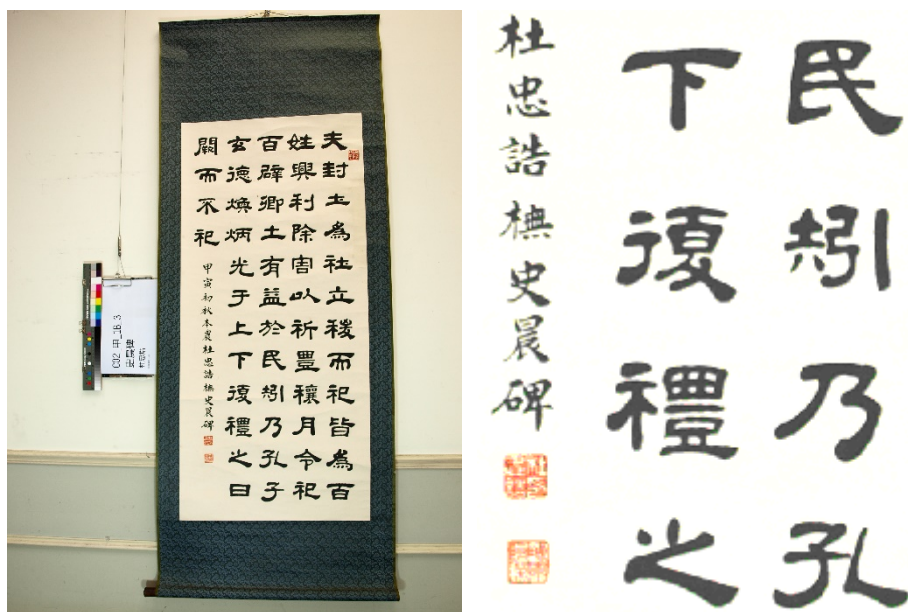 夫封土為社立稷而祀皆為百
姓興利除害以祈豐穰月令祀
百辟卿士有益於民矧乃孔子
玄德煥炳光于上下復禮之日
闕而不祀
甲寅初秋杜忠誥橅史晨碑
史晨碑
杜忠誥
民矧乃孔
下復禮之
杜忠誥橅史晨碑